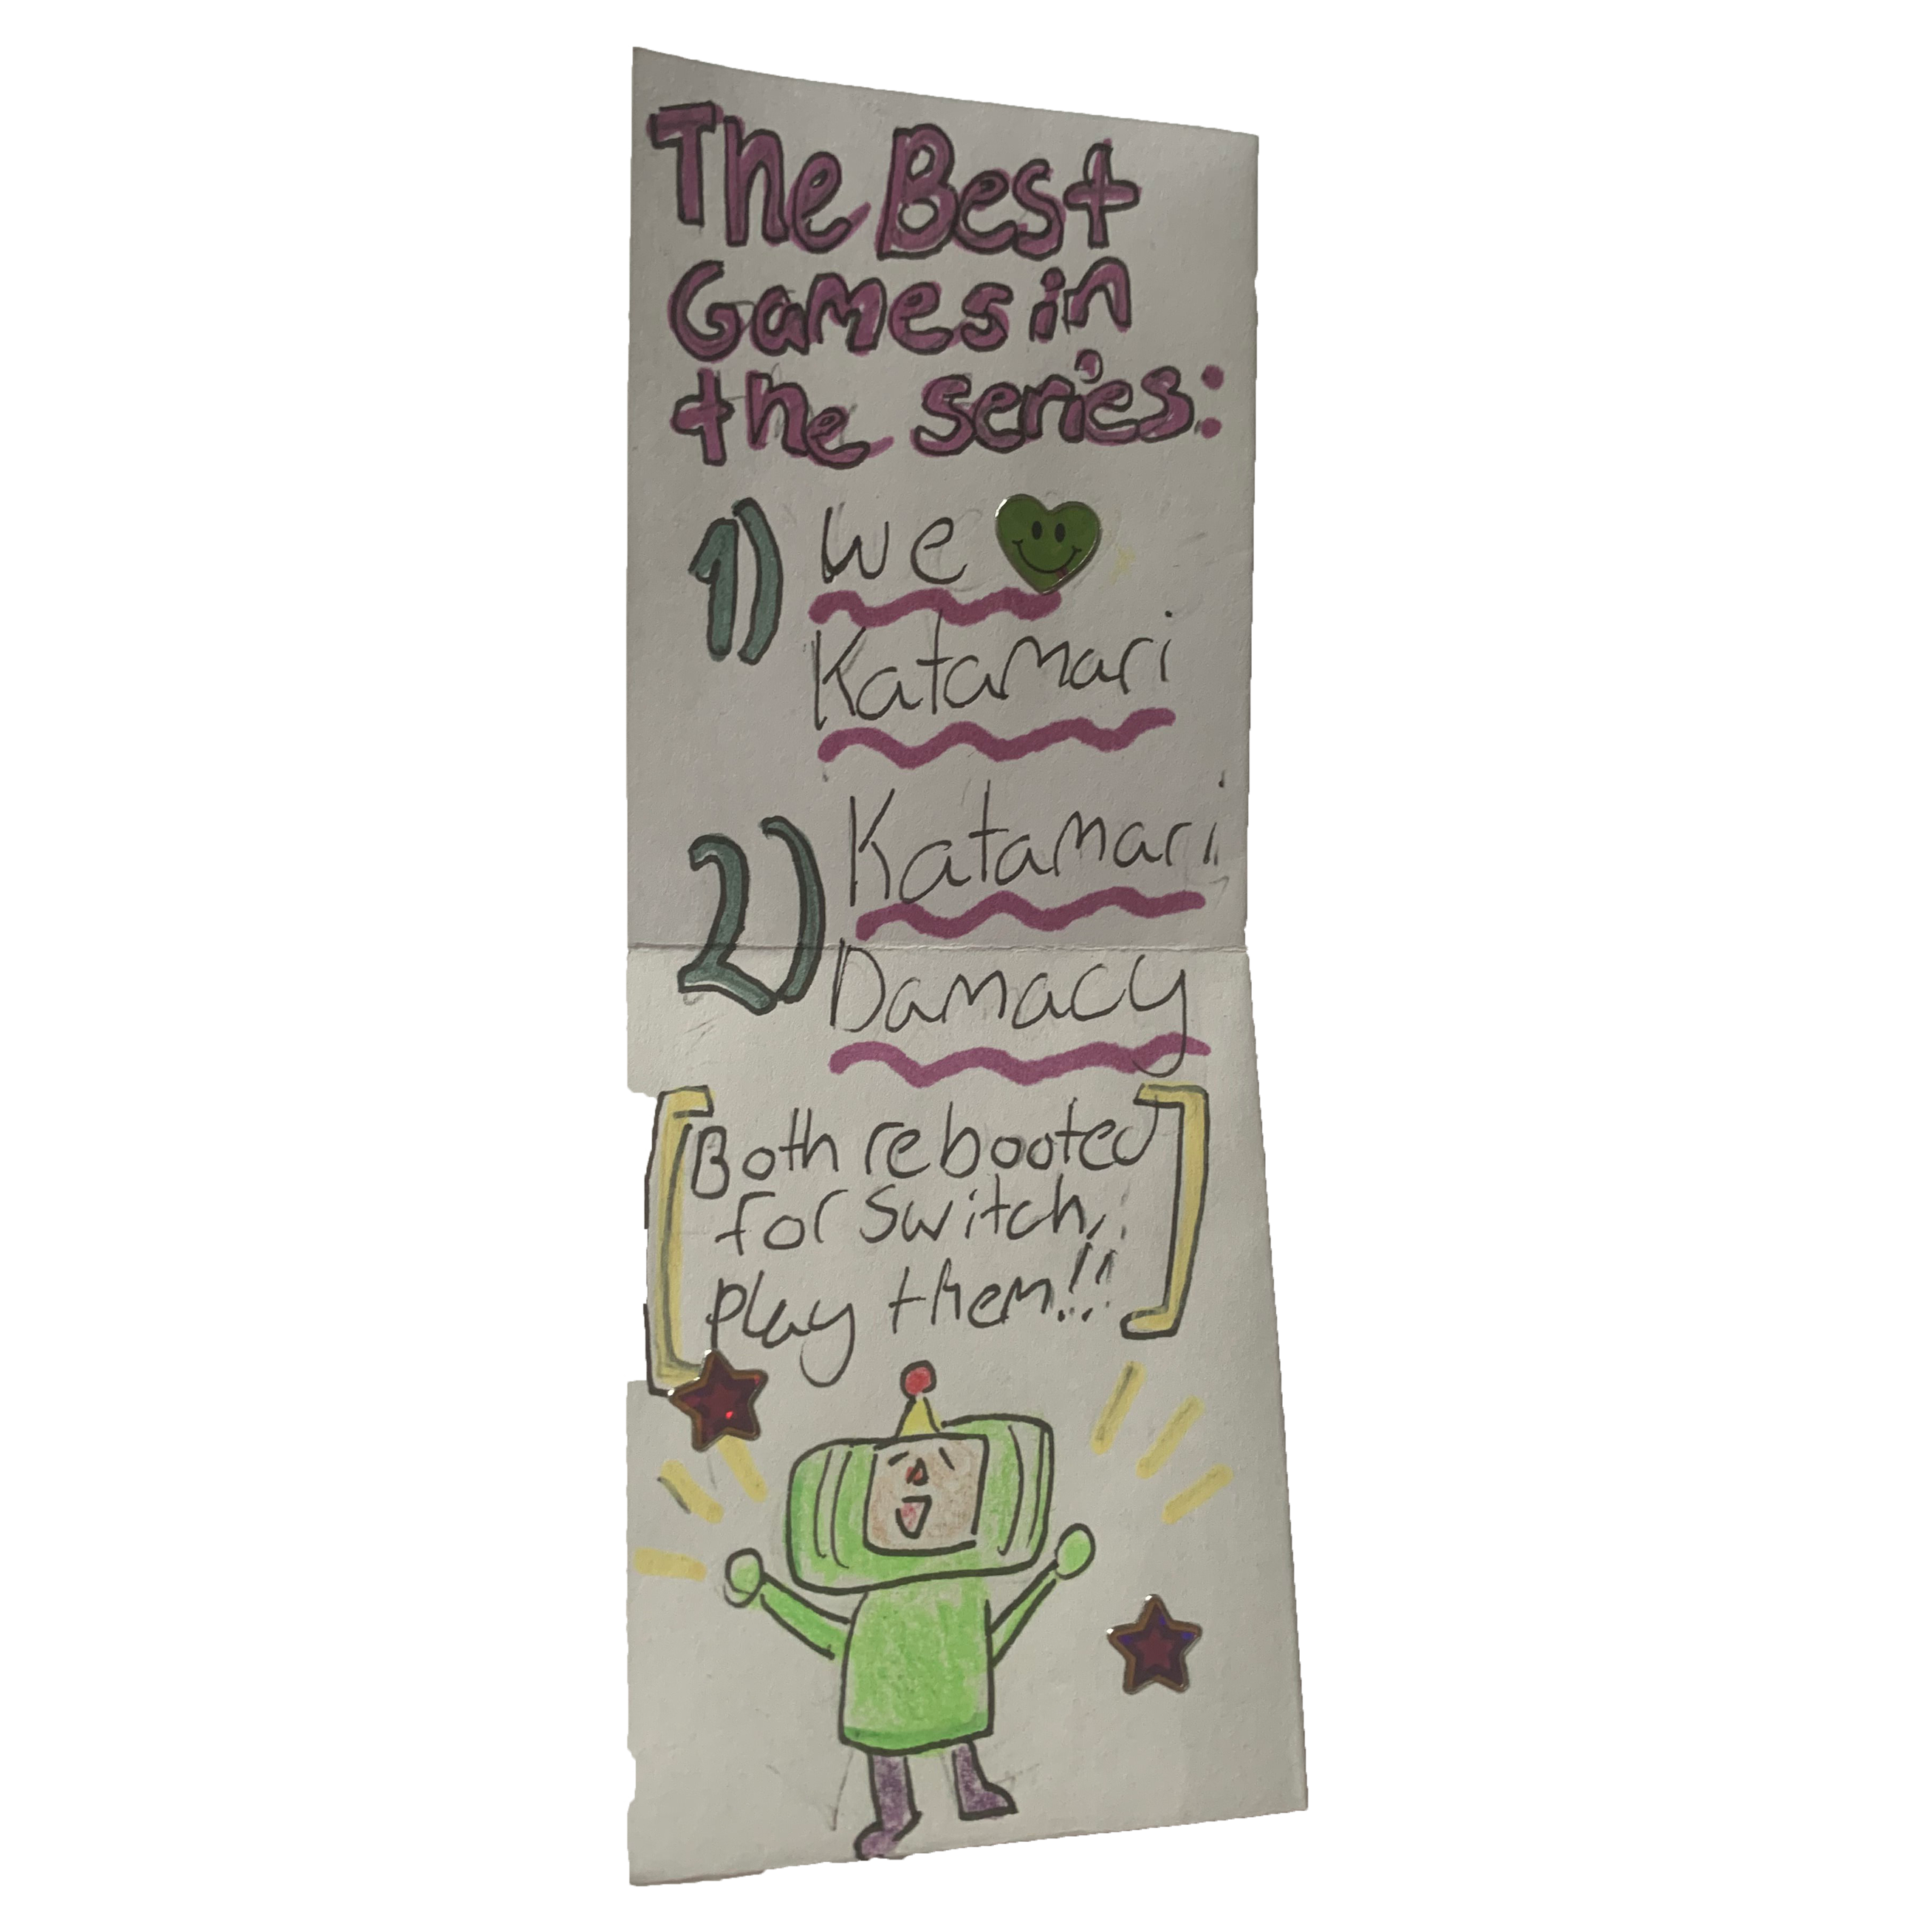 The Best
Games in
the series:
1) We
Katamari
2) Katamari
Damacy
[Both rebooted
for switch,
play them!!!]